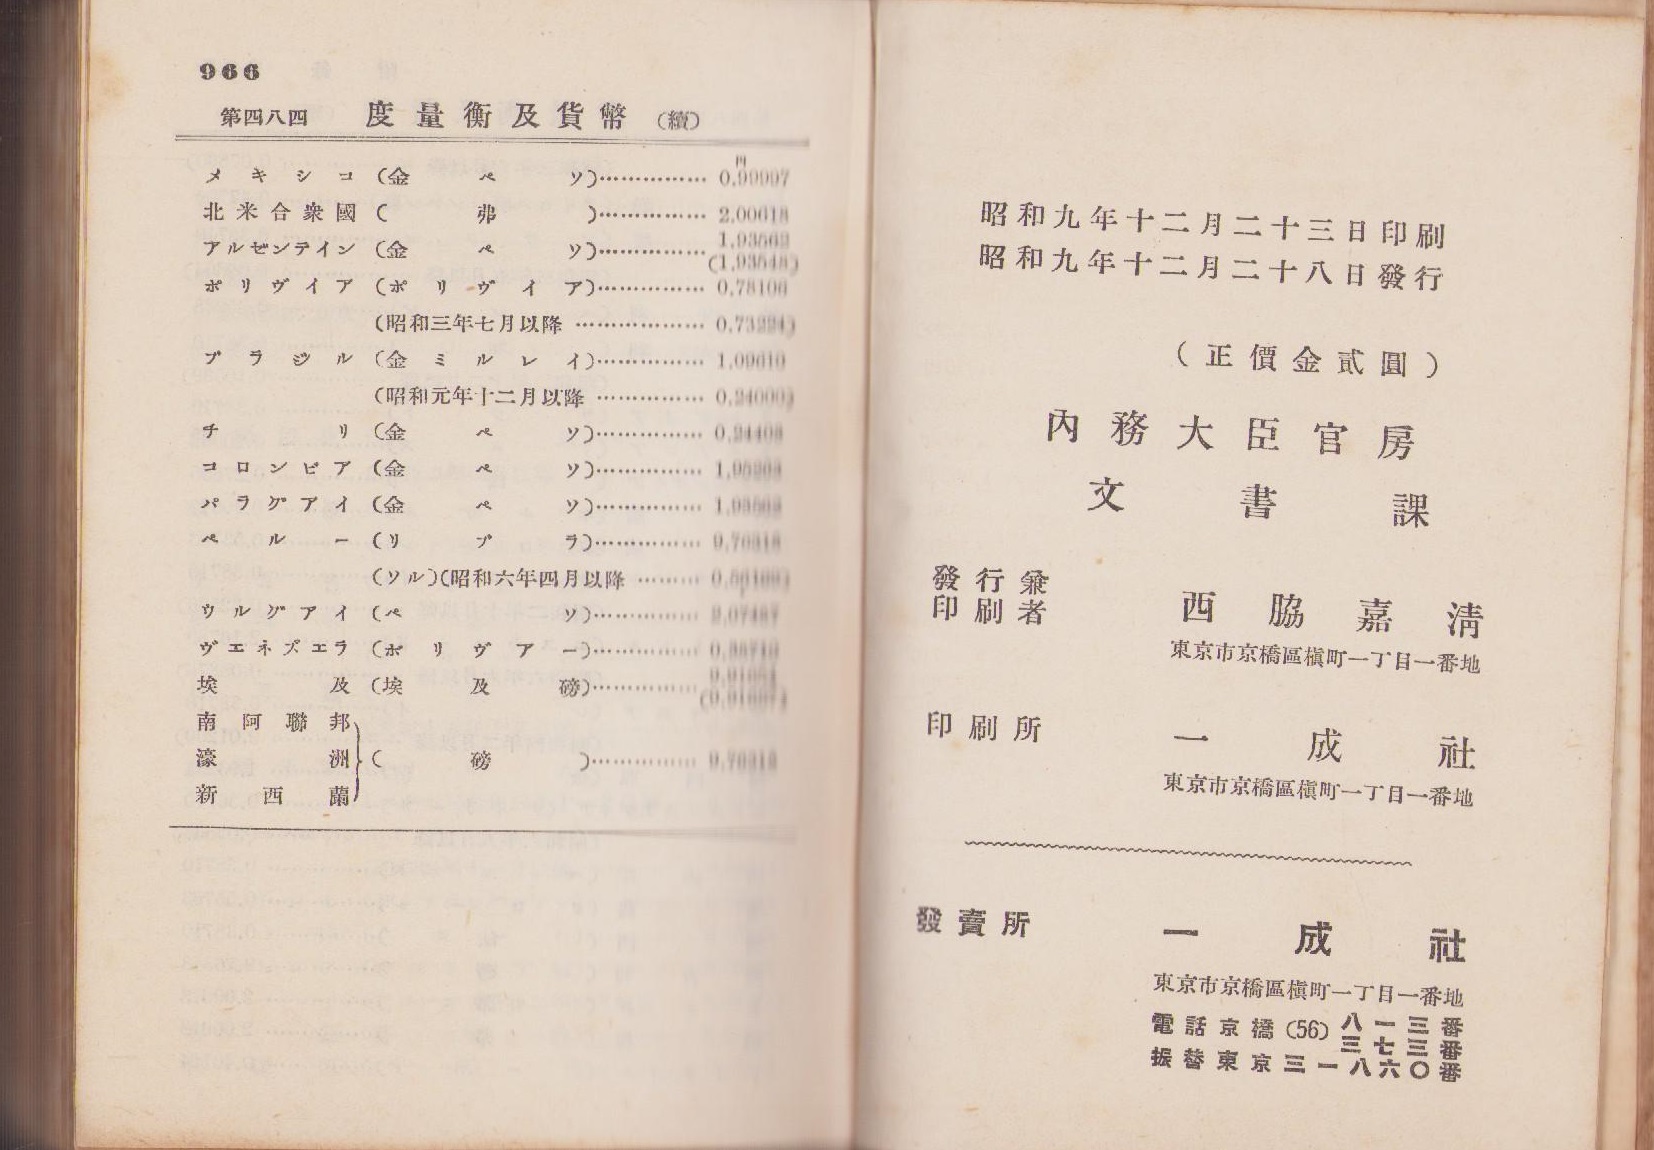 966
第四八四 度量衡及貨幣 (續)
円
メキシコ (金ペソ)…………… 0,99997
北米合衆國 (弗)…………… 2,00618
アルゼンテイン (金ペソ)…………… 1,93562
(1,93548)
ボリヴイア (ボリヴイア)…………… 0,78106
(昭和三年七月以降 ……………… 0,73224)
ブラジル (金ミルレイ)…………… 1,09610
(昭和元年十二月以降 …………… 0,24000)
チリ (金ペソ)……………
コロンビア (金ペソ)……………
パラグアイ (金ペソ)……………
ペルー (リブラ)…………… 9,76318
(ソル)(昭和六年四月以降 ………
ウルグアイ (ペソ)…………… 2,07487
ヴエネズエラ (ボリヴアー)……………
埃及 (埃及磅)……………
南阿聯邦
濠洲 (磅)…………… 9,76318
新西蘭
昭和九年十二月二十三日印刷
昭和九年十二月二十八日發行
(正價金貳圓)
內務大臣官房
文書課
發行兼
印刷者 西脇嘉淸
東京市京橋區槇町一丁目一番地
印刷所 一成社
東京市京橋區槇町一丁目一番地
發賣所 一成社
東京市京橋區槇町一丁目一番地
電話京橋(56)八一三番
三七三番
振替東京三一八六〇番